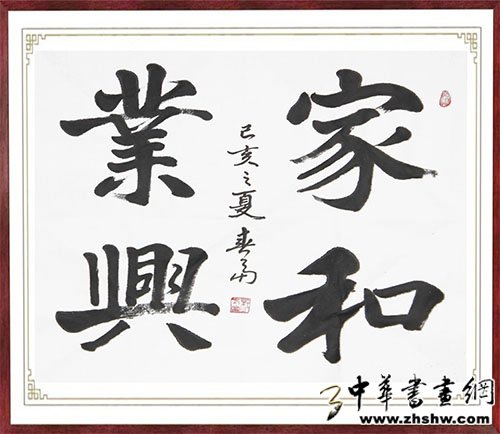 家和
業興
己亥之夏春
中華書畫網
www.zhshw.com